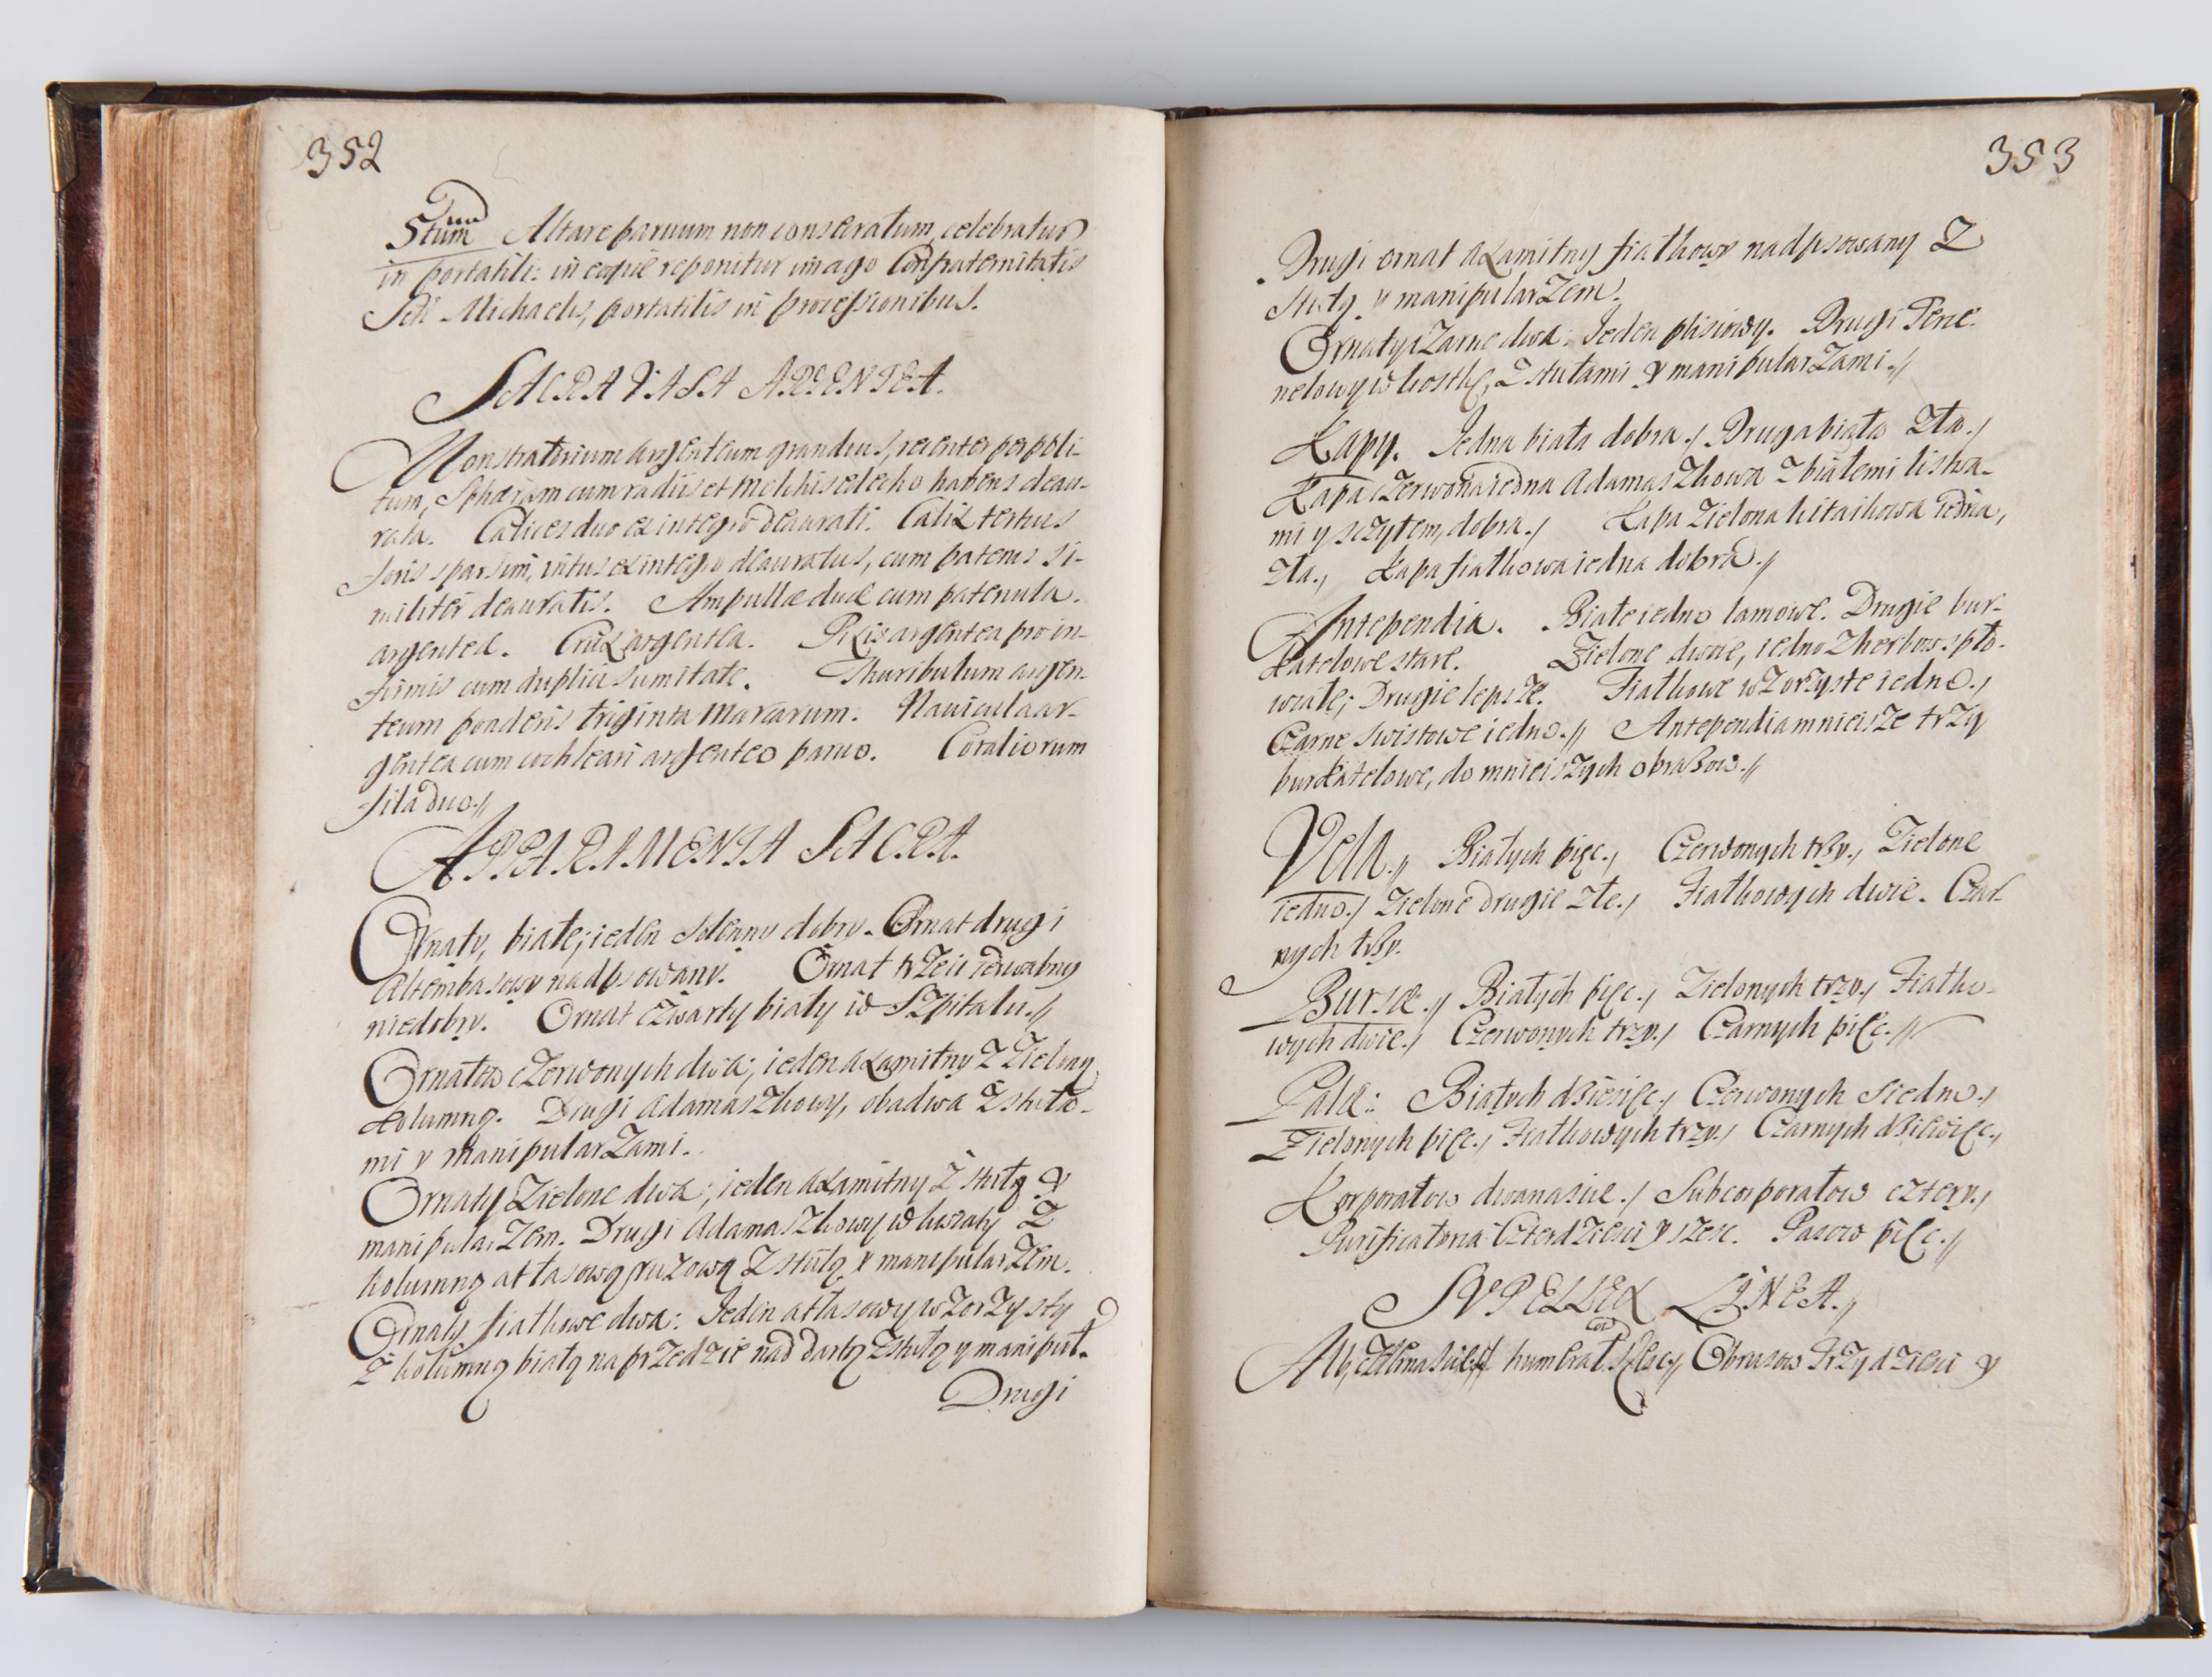 352
5tum Altare paruum non consecratum, celebratur
in portatili: in eoque reponitur imago Confraternitatis
Sti Michaelis, portatilis in processionibus.
SACRA VASA ARGENTEA.
Monstratorium argenteum grandius, recenter perpoli-
tum, Sphæram cum radiis et Melchisedecho habens deau-
rata. Calices duo ex integro deaurati. Calix tertius
foris sparsim, intus ex integro deauratus, cum patenis si-
militer deauratis. Ampullæ duæ cum patenula
argenteæ. Crux argentea. Pixis argentea pro in-
firmis cum duplici sumitate. Thuribulum argen-
teum ponderis triginta Marcarum. Nauicula ar-
gentea cum cochleari argenteo paruo. Coraliorum
fila duo.//
APPARAMENTA SACRA.
Ornaty, białe; ieden solenny dobry. Ornat drugi
Altembasowy nadpsowany. Ornat trzeci iedwabny
niedobry. Ornat czwarty biały w Szpitalu.//
Ornatow czerwonych dwa; ieden axamitny z zieloną
kolumną. Drugi adamaszkowy, obadwa z stuła-
mi y manipularzami.
Ornaty zielone dwa; ieden axamitny z stułą y
manipularzem. Drugi adamaszkowy w kwiaty z
kolumną atłasową ruzową z stułą y manipularzem.
Ornaty fiałkowe dwa: Jeden atłasowy wzorzysty
z kolumną białą na przedzie nad dartą z stułą y manipuł.
Drugi
353
Drugi ornat axamitny fiałkowy nadpsowany z
stułą y manipularzem.
Ornaty czarne dwa: Jeden plisiowy. Drugi Terce-
nelowy w kostkę, z stułami y manipularzami.//
Kapy. Jedna biała dobra./ Druga biała zła./
Kapa czerwona iedna adamaszkowa z białemi listwa-
mi y sczytem, dobra./ Kapa zielona kitaikowa iedna,
zła./ Kapa fiałkowa iedna dobra.//
Antependia. Białe iedno lamowe. Drugie bur-
katelowe stare. Zielone dwoie, iedno z herbow spło-
wiałe; Drugie lepsze. Fiałkowe wzorzyste iedno./
Czarne swistowe iedno.// Antependia mnieisze trzy
burkatelowe, do mnieiszych obraßow.//
Vela.// Białych pięc./ Czerwonych trßy./ Zielone
iedno./ Zielone drugie złe./ Fiałkowych dwie. Czar-
nych trßy.
Bursæ.// Białych pięc./ Zielonych trzy./ Fiałko-
wych dwie./ Czerwonych trzy./ Czarnych pięc.//
Palæ: Białych dßiesięc./ Czerwonych siedm./
Zielonych pięc./ Fiałkowych trzy./ Czarnych dßiewięc./
Korporałow dwanascie./ Subcorporałow cztery./
Purificatoria czterdziesci y szesc. Pasow pięc.//
SVPELLEX LINEA.//
Alb, humerałow Obrusow trzydziesci y